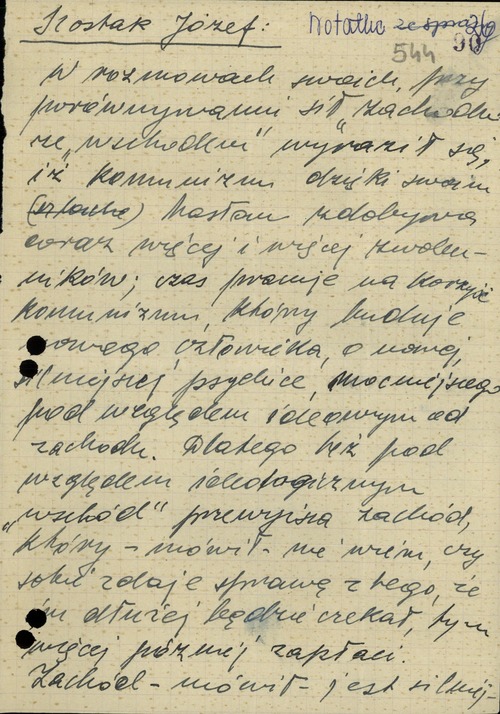 Kostak Józef:
Notatka ze spraw
544 90
W rozmowach swoich, przy
porównywaniu sił "zachodu
ze "wschodem" wyraził się,
iż komunizm dzięki swoim
hasłom zdobywa
coraz więcej i więcej zwolen-
ników; czas pracuje na korzyść
komunizmu, który buduje
nowego człowieka, o nowej,
silniejszej psychice, mocniejszego
pod względem ideowym od
zachodu. Dlatego też pod
względem ideologicznym
"wschód" przewyższa zachód,
który - mówił - nie wiem, czy
sobie zdaje sprawę z tego, że
im dłużej będzie czekał, tym
więcej później zapłaci.
Zachód - mówił - jest silniej-